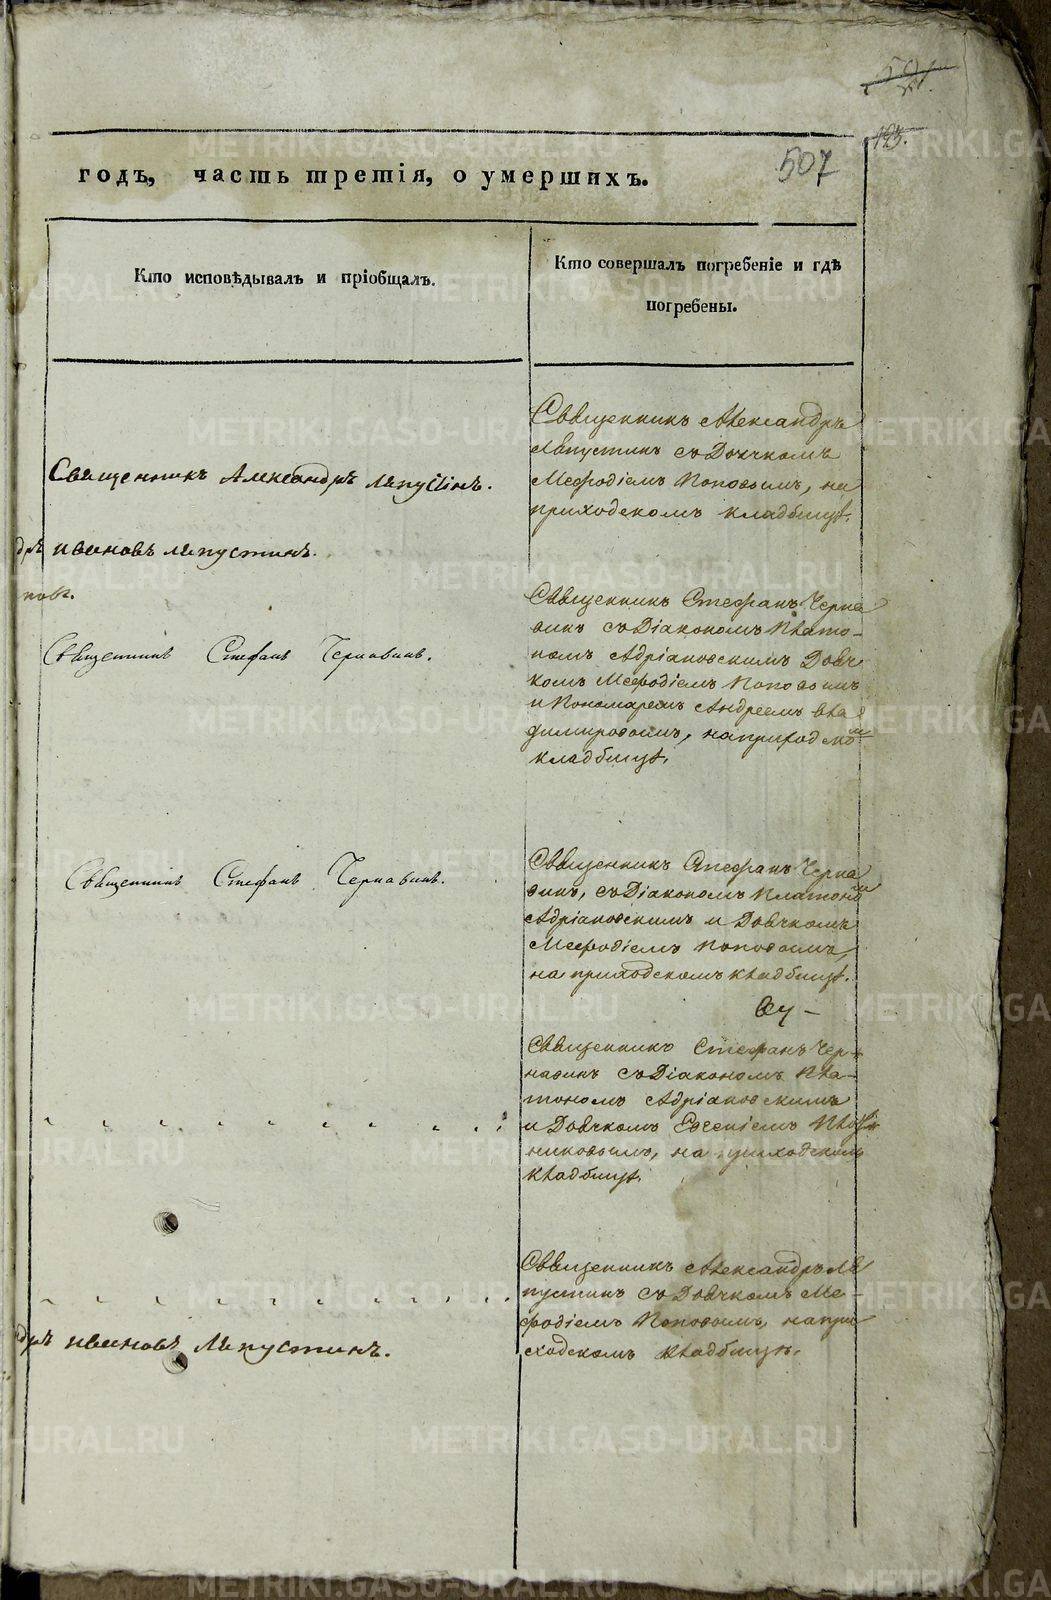 123.
507
годъ, часть третія, о умершихъ.
Кто исповѣдывалъ и пріобщалъ.
Кто совершалъ погребеніе и гдѣ
погребены.
Священникъ Александръ
Ляпустинъ съ Дьячкомъ
Мефодіемъ Поповымъ, на
приходскомъ кладбищѣ.
Священникъ Александръ Ляпустинъ.
дръ Ивановъ Ляпустинъ.
повъ.
Священникъ Стефанъ Чернавинъ.
Священникъ Стефанъ Черна
винъ съ Діакономъ Плато-
номъ Адріановскимъ Дьяч
комъ Мефодіемъ Поповымъ
и Пономаремъ Андреемъ Вла
димировымъ, на приходскомъ
кладбищѣ.
Священникъ Стефанъ Чернавинъ.
Священникъ Стефанъ Черна
винъ, съ Діакономъ Платономъ
Адріановскимъ и Дьячкомъ
Мефодіемъ Поповымъ,
на приходскомъ кладбищѣ.
Священникъ Стефанъ Чер-
навинъ съ Діакономъ Пла-
тономъ Адріановскимъ
и Дьячкомъ Евгеніемъ
никовымъ, на приходскомъ
кладбищѣ.
Священникъ Александръ Ля
пустинъ съ Дьячкомъ Ме-
фодіемъ Поповымъ, на при
ходскомъ кладбищѣ.
дръ Ивановъ Ляпустинъ.
METRIKI.GASO-URAL.RU